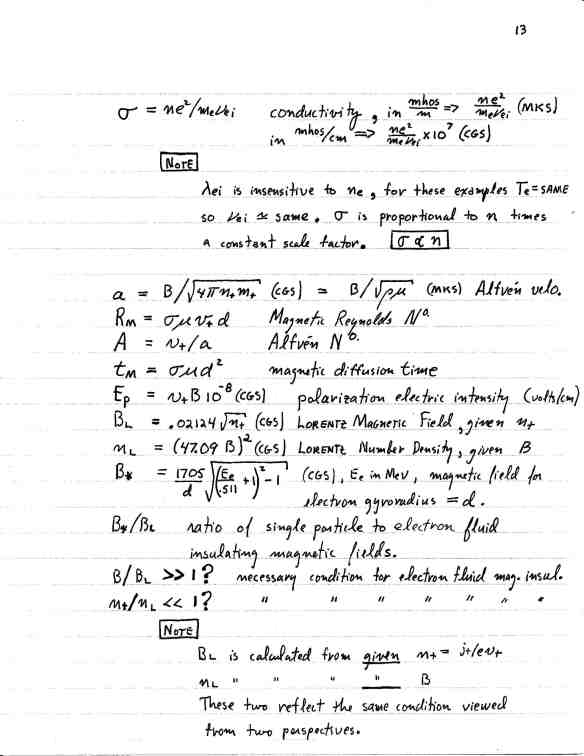 13
σ = ne²/meνei conductivity, in mhos/m => ne²/meνei (MKS)
in mhos/cm => ne²/meνei ×10⁷ (CGS)
NOTE
λei is insensitive to ne, for these examples Te = SAME
so νei ≃ same. σ is proportional to n times
a constant scale factor. σ ∝ n
a = B/√4πn+m+ (CGS) = B/√ρμ (MKS) Alfvén velo.
RM = σμv+d Magnetic Reynolds Nº
A = v+/a Alfvén Nº
tM = σμd² magnetic diffusion time
Ep = v+B 10⁻⁸ (CGS) polarization electric intensity (volts/cm)
BL = .02124√n+ (CGS) LORENTZ MAGNETIC Field, given n+
nL = (47.09 B)² (CGS) LORENTZ Number Density, given B
B* = 1705/d √(Ee/.511 +1)² -1 (CGS), Ee in MeV, magnetic field for
electron gyroradius = d.
B*/BL ratio of single particle to electron fluid
insulating magnetic fields.
B/BL >> 1? necessary condition for electron fluid mag. insul.
n+/nL << 1? " " " " " " "
NOTE
BL is calculated from given n+ = j+/ev+
nL " " " " B
These two reflect the same condition viewed
from two perspectives.